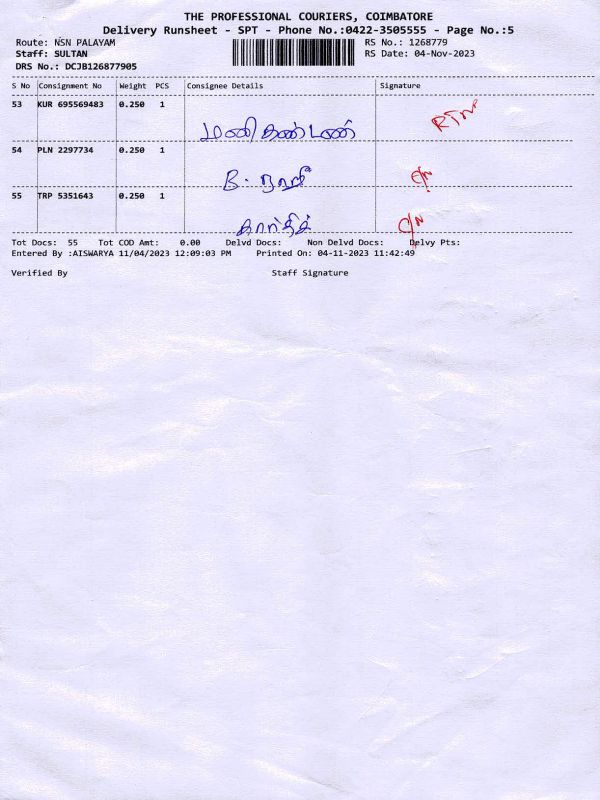 THE PROFESSIONAL COURIERS, COIMBATORE
Delivery Runsheet - SPT - Phone No.:0422-3505555 - Page No.:5
Route: NSN PALAYAM RS No.: 1268779
Staff: SULTAN RS Date: 04-Nov-2023
DRS No.: DCJB126877905
S No Consignment No Weight PCS Consignee Details Signature
53 KUR 695569483 0.250 1
மணிகண்டன்
54 PLN 2297734 0.250 1
B.
C/N
55 TRP 5351643 0.250 1
கார்திக்
C/N
Tot Docs: 55 Tot COD Amt: 0.00 Delvd Docs: Non Delvd Docs: Delvy Pts:
Entered By :AISWARYA 11/04/2023 12:09:03 PM Printed On: 04-11-2023 11:42:49
Verified By Staff Signature